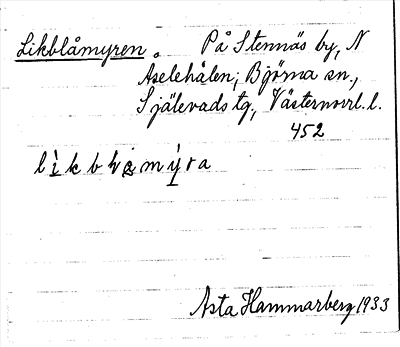 Likblåmyren. På Stennäs by, N
Åselehålen; Björna sn.,
Själevads tg., Västernorrl. l.
452
Asta Hammarberg 1933